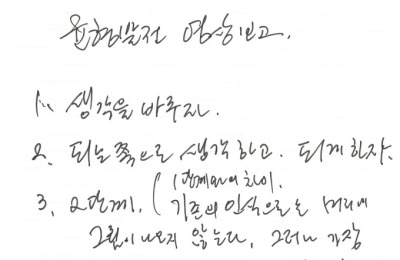 균형발전 영상보고.
1. 생각을 바꾸자.
2. 되는 쪽으로 생각하고. 되게하자.
3, 2단계. (1단계와의 차이.
기존의 인식으로는 머리에
그림이 나오지 않는다, 그러나 가장